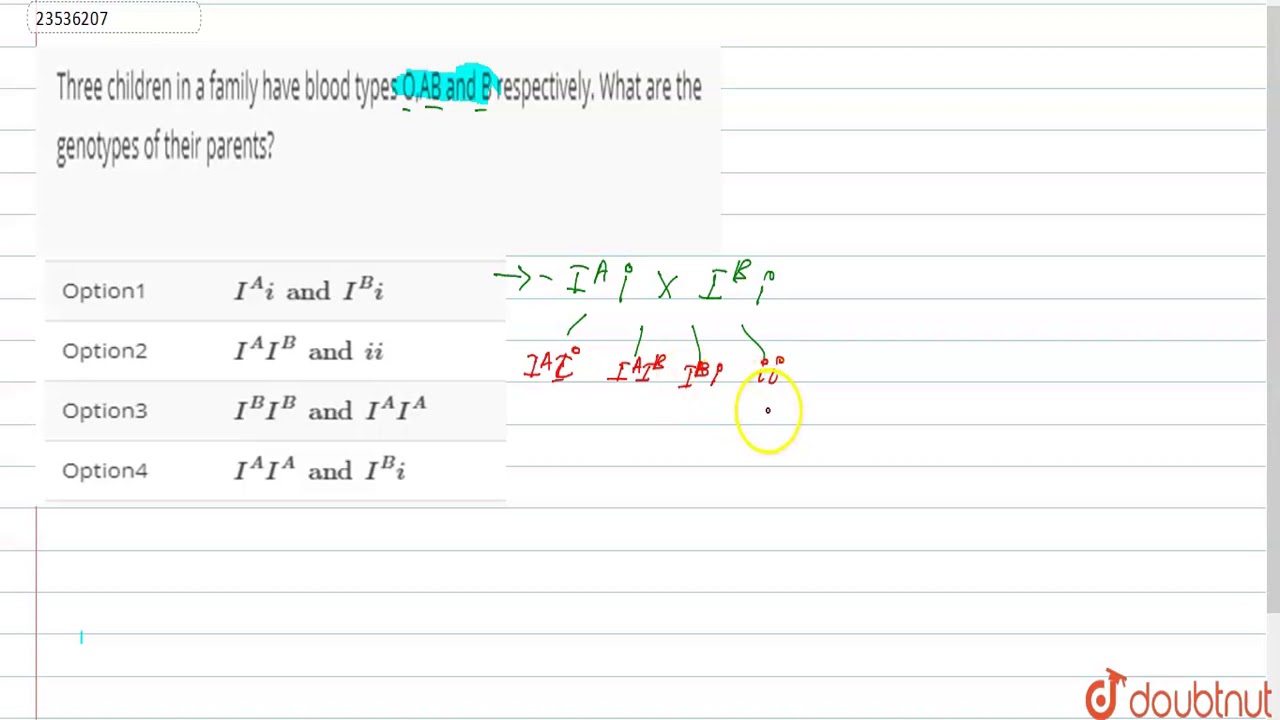 23536207
Three children in a family have blood types O,AB and B respectively. What are the
genotypes of their parents?
Option1 I^A i and I^B i
Option2 I^A I^B and ii
Option3 I^B I^B and I^A I^A
Option4 I^A I^A and I^B i
→ - I^A i X I^B i
I^A i I^A I^B I^B i ii
doubtnut